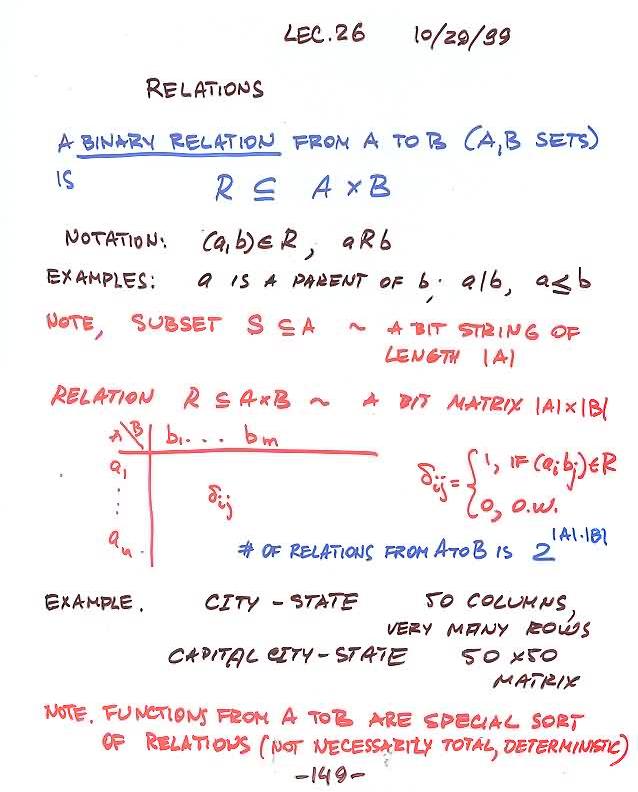 LEC. 26 10/29/99
RELATIONS
A BINARY RELATION FROM A TO B (A,B SETS)
IS R ⊆ A × B
NOTATION: (a,b) ∈ R, aRb
EXAMPLES: a IS A PARENT OF b; a|b, a ≤ b
NOTE, SUBSET S ⊆ A ~ A BIT STRING OF
LENGTH |A|
RELATION R ⊆ A×B ~ A BIT MATRIX |A|×|B|
A\B b₁ . . . bₘ
a₁
⋮ δᵢⱼ δᵢⱼ = { 1, IF (aᵢ bⱼ) ∈ R
0, O.W.
aₙ
# OF RELATIONS FROM A TO B IS 2^|A|·|B|
EXAMPLE. CITY – STATE 50 COLUMNS,
VERY MANY ROWS
CAPITAL CITY – STATE 50 × 50
MATRIX
NOTE. FUNCTIONS FROM A TO B ARE SPECIAL SORT
OF RELATIONS (NOT NECESSARILY TOTAL, DETERMINISTIC)
-149-